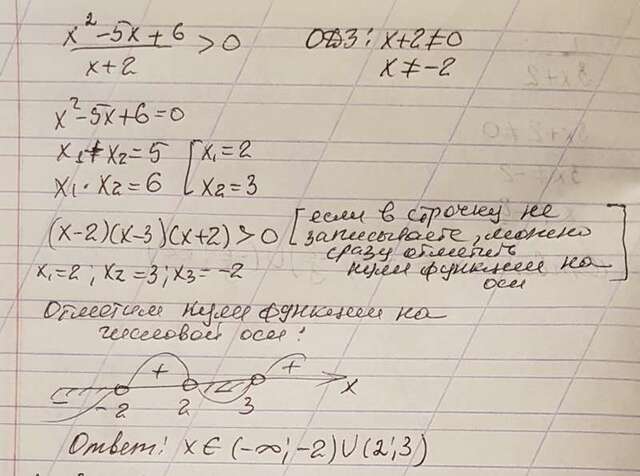 x² - 5x + 6 / x + 2 > 0   ОДЗ: x + 2 ≠ 0
x ≠ -2
x² - 5x + 6 = 0
x₁ + x₂ = 5 [ x₁ = 2
x₁ · x₂ = 6 [ x₂ = 3
(x-2)(x-3)(x+2) > 0 [если в строчку не
записываете, можно
сразу отметить
нули функции на
оси]
x₁ = 2; x₂ = 3; x₃ = -2
Отметим нули функции на
числовой оси:
+ +
-2 2 3 x
Ответ: x ∈ (-∞; -2) ∪ (2; 3)